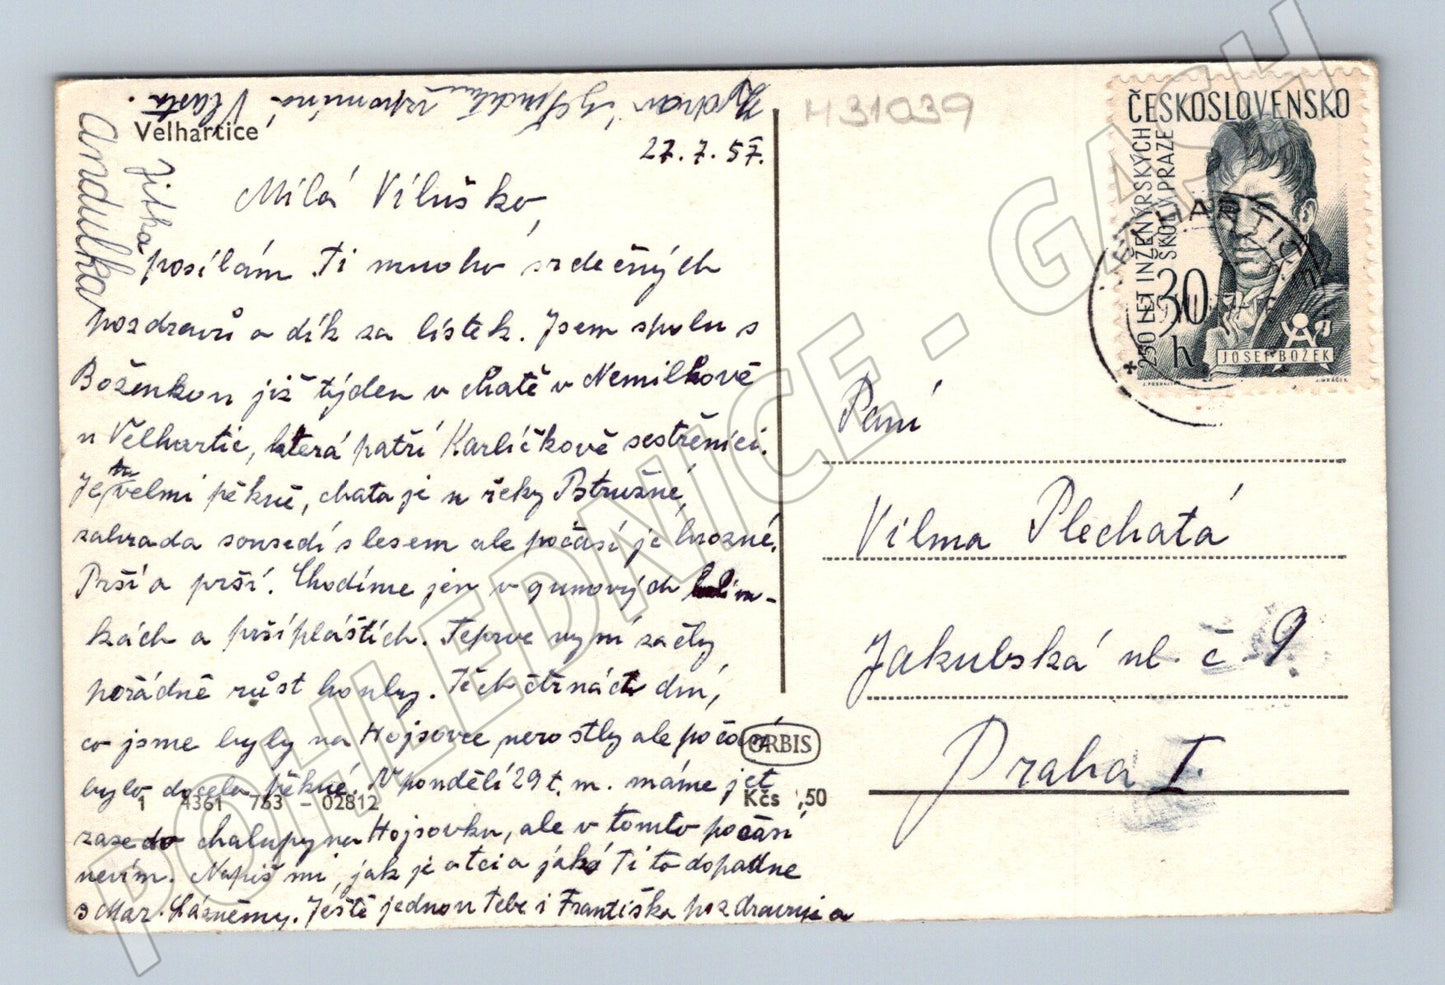 Velhartice
27.7.57.
Milá Viluško,
posílám Ti mnoho srdečných
pozdravů a dík za lístek. Jsem spolu s
Boženkou již týden v chatě v Nemilkově
u Velhartic, která patří Karlíčkově sestřenici.
Je tu velmi pěkně, chata je u řeky Pstružné,
zahrada sousedí s lesem ale počasí je hrozné.
Prší a prší. Chodíme jen v gumových holin-
kách a pršipláštích. Teprve nyní začly
pořádně růst houby. Těch čtrnáct dní,
co jsme byly na Hojsovce nerostly ale počasí
bylo docela pěkné. V pondělí 29 t. m. máme jet
zase do chalupy na Hojsovku, ale v tomto počasí
nevím. Napiš mi, jak je otci a jak Ti to dopadne
s Mar. Lázněmy. Ještě jednou Tebe i Františka pozdravuje a
vzpomíná Vlasta.
Jitka
Andulka
1 4361 753 - 02812
ORBIS
Kčs ,50
H31039
ČESKOSLOVENSKO
250 LET INŽENÝRSKÝCH
ŠKOL V PRAZE
30
h
JOSEF BOŽEK
Paní
Vilma Plechatá
Jakubská ul. č. 9.
Praha I.
POHLEDNICE - GASH